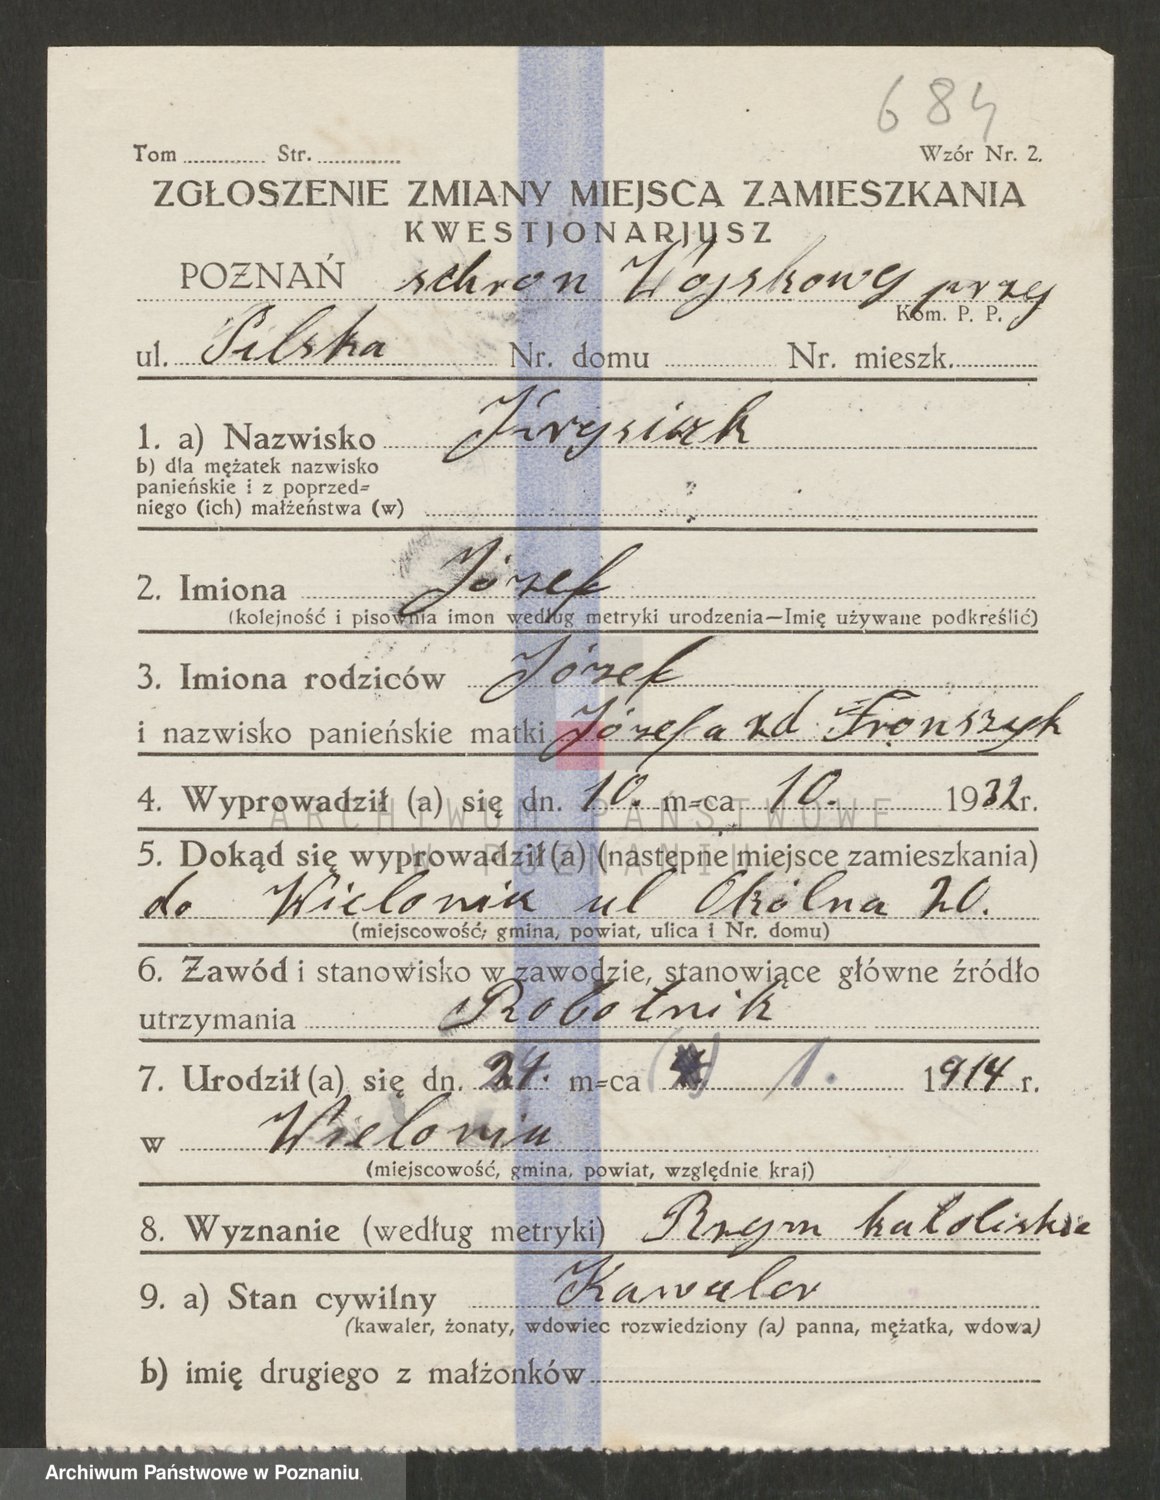 684
Tom ............ Str. ............ Wzór Nr. 2.
ZGŁOSZENIE ZMIANY MIEJSCA ZAMIESZKANIA
KWESTJONARJUSZ
POZNAŃ schron Wojskowy przy
Kom. P. P.
ul. Pilska Nr. domu ............ Nr. mieszk. ............
1. a) Nazwisko Krysiak
b) dla mężatek nazwisko
panieńskie i z poprzed=
niego (ich) małżeństwa (w)
2. Imiona Józef
(kolejność i pisownia imon według metryki urodzenia—Imię używane podkreślić)
3. Imiona rodziców Józef
i nazwisko panieńskie matki Józefa zd Fronszyk
4. Wyprowadził (a) się dn. 10. m=ca 10. 1932 r.
ARCHIWUM PAŃSTWOWE
W POZNANIU
5. Dokąd się wyprowadził (a) (następne miejsce zamieszkania)
do Wielonia ul Okólna 20.
(miejscowość, gmina, powiat, ulica i Nr. domu)
6. Zawód i stanowisko w zawodzie, stanowiące główne źródło
utrzymania Robotnik
7. Urodził (a) się dn. 24. m=ca 1. 1914 r.
w Wieloniu
(miejscowość, gmina, powiat, względnie kraj)
8. Wyznanie (według metryki) Rzym katoliskie
9. a) Stan cywilny Kawaler
(kawaler, żonaty, wdowiec rozwiedziony (a) panna, mężatka, wdowa)
b) imię drugiego z małżonków
Archiwum Państwowe w Poznaniu